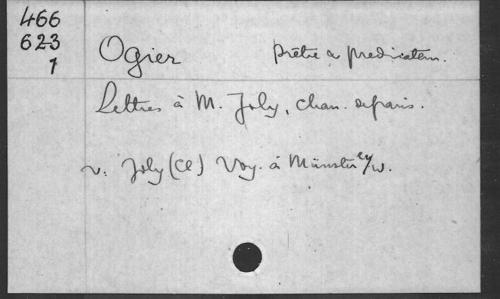 466
623
1
Ogier prêtre & predicateur.
Lettres à M. Joly, chan. de paris.
v. Joly (Cl) Voy. à Münster /W.